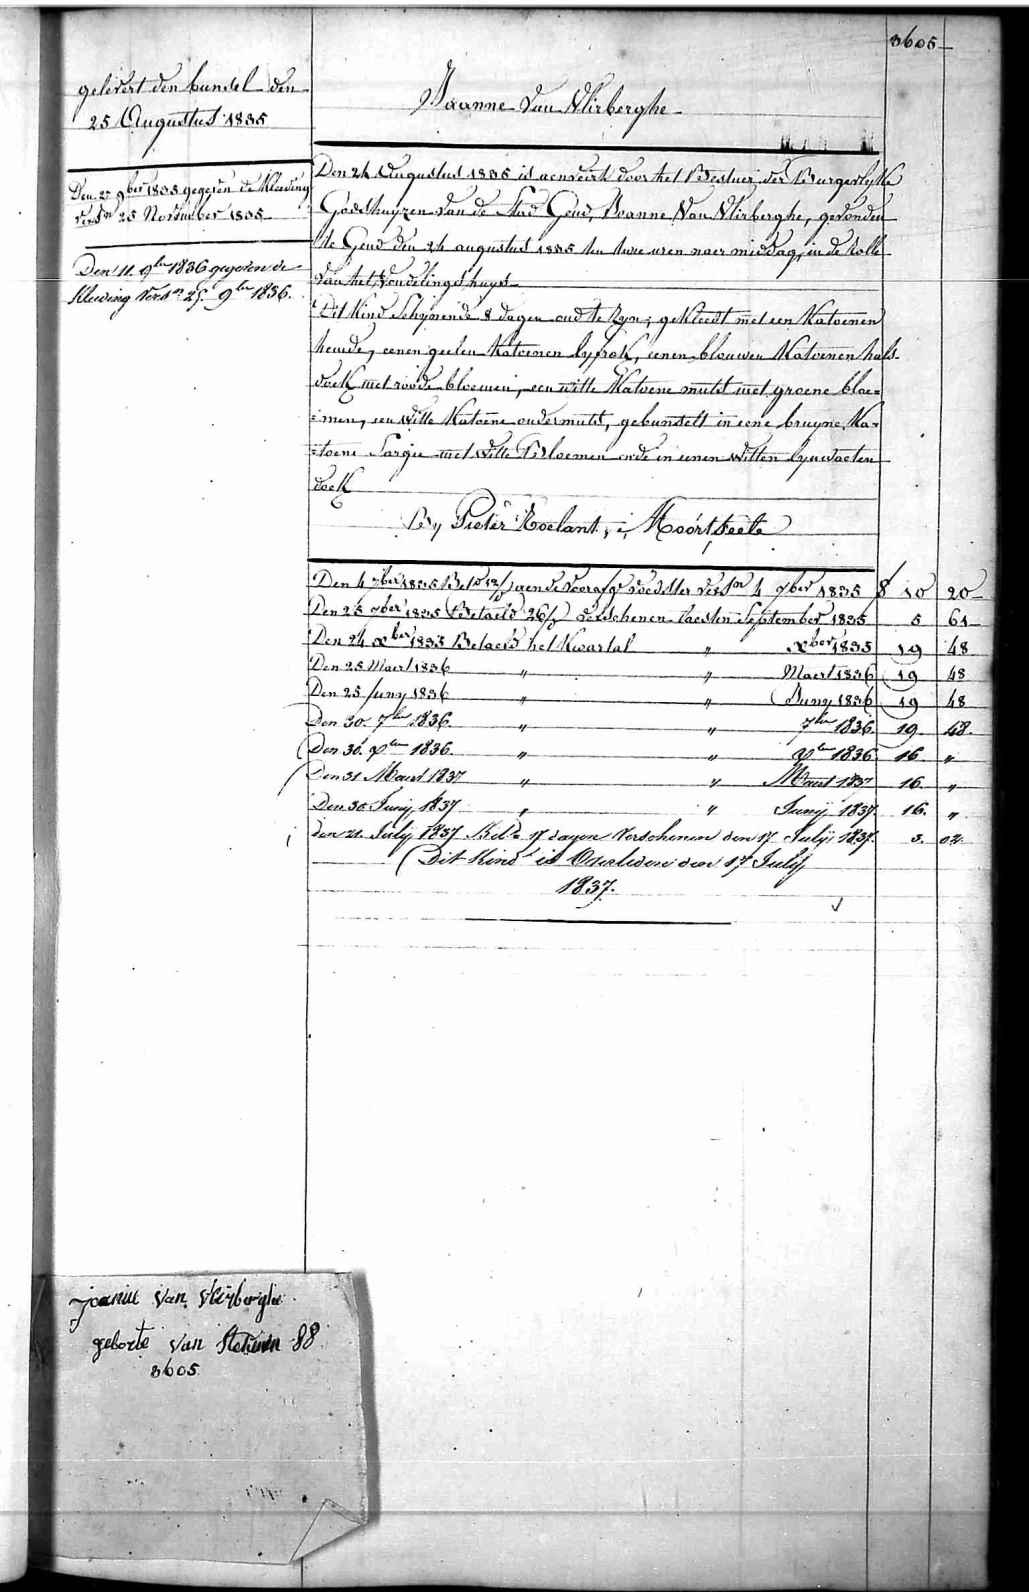 8605
gelevert den bundel den
25 Augustus 1835
Joanne Van Vlirberghe
Den 27 9ber 1835 gegeven de Kleeding
versn 25 November 1835
Den 11. 9ber 1836 gegeven de
Kleeding versn 25. 9ber 1836.
Den 24 Augustus 1835 is aenveirt door het Bestuer der Burgerlyke
Godshuyzen van de Stad Gend, Joanne Van Vlirberghe, gevonden
te Gend den 24 augustus 1835 ten twee uren naer middag, in de Rolle
van het Vondelingshuys
Dit Kind schynende 8 dagen oud te zyn, gekleedt met een Katoenen
hemde, eenen geelen Katoenen lyfrok, eenen blauwen Katoenen hals-
doek met roode bloemen, een witte Katoene muts met groene bloe=
=men, een witte Katoene ondermuts, gebundelt in eene bruyne Ka=
=toene Sargie met witte Bloemen ende in eenen witten lynwaeten
doek
By Pieter Roelant, in Moortseele
Den 4 7ber 1835 aen de voedster versn 4 7ber 1835 8 10 20
Den 25 7ber 1835 Betaeld 26/ verschenen laesten September 1835 5 61
Den 24 xber 1835 Betaeld het Kwartal " xber 1835 19 48
Den 25 Maert 1836 " " Maert 1836 19 48
Den 25 Juny 1836 " " Juny 1836 19 48
Den 30. 7ber 1836. " " 7ber 1836. 19. 48.
Den 30. xber 1836. " " xber 1836 16. "
Den 31 Maert 1837 " " Maert 1837 16. "
Den 30 Junij 1837 " " Junij 1837. 16. "
den 21. July 1837 Betd. 17 dagen verschenen den 17 Julij 1837. 3. 02
Dit Kind is Overleden den 17 July
1837.
joanne van vlirberghe
geborte van 88
8605